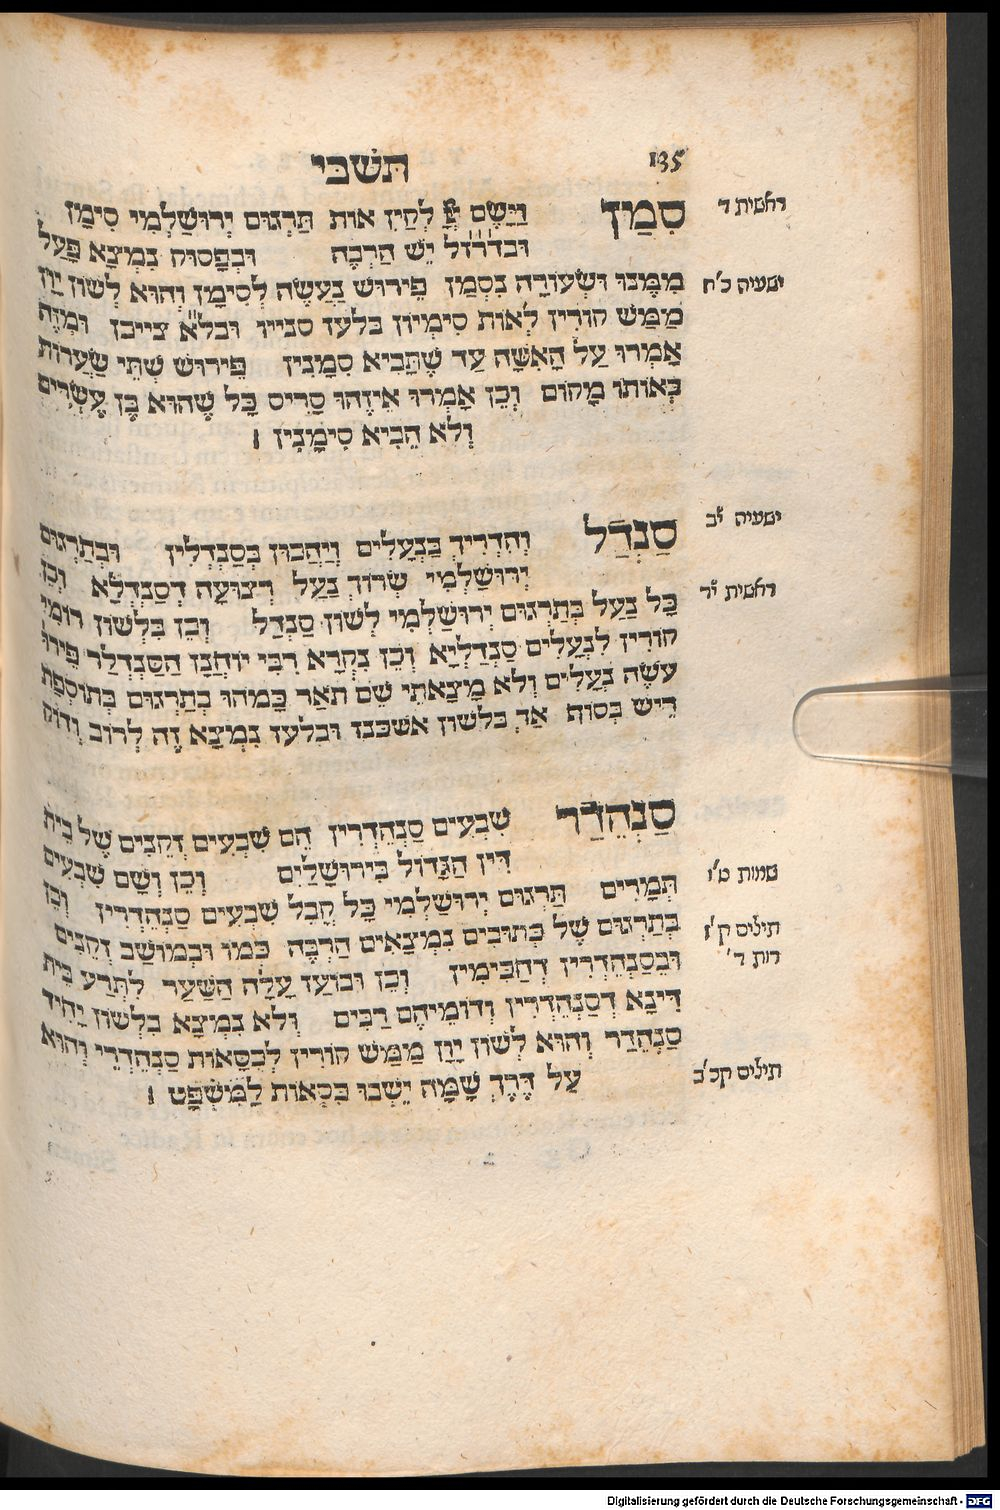 135 תשבי
סִמַן וַיָּשֶׂם יְיָ לְקַיִן אות תַּרְגּוּם יְרוּשַׁלְמִי סִימַן
בראשית ד
ובדרז״ל יֵשׁ הַרְבֶּה ובְפָסוּק נִמְצָא פָּעַל
מִמֶּנּוּ וּשְׂעוֹרָה נִסְמַן פֵּירוּשׁ נַעֲשֶׂה לְסִימָן וְהוּא לְשׁוֹן יָוָן
ישעיה כ׳ח
מַמַּשׁ קוֹרִין לְאוֹת סִימִיוֹן בלעז סנייו ובל״א צייכן וּמִזֶּה
אָמְרוּ עַל הָאִשָּׁה עַד שֶׁתָּבִיא סִמָנִין פֵּירוּשׁ שְׁתֵּי שַׂעֲרוֹת
בְּאוֹתוֹ מָקוֹם וְכֵן אָמְרוּ אֵיזֶהוּ סָרִיס כָּל שֶׁהוּא בֶּן עֶשְׂרִים
וְלֹא הֵבִיא סִימָנִין ׃
סַנְדַל וְהִדְרִיךְ בַּנְּעָלִים וִיהָכוּן בְּסַנְדְלִין ובְתַרְגּוּם
ישעיה י״ב
יְרוּשַׁלְמִי שְׂרוֹךְ נַעַל רְצוּעָה דְסַנְדְלָא וְכֵן
בראשית י״ד
כָּל נַעַל בְּתַרְגּוּם יְרוּשַׁלְמִי לְשׁוֹן סַנְדַל וְכֵן בִּלְשׁוֹן רוֹמִי
קוֹרִין לִנְעָלִים סַנְדַלְיָא וְכֵן נִקְרָא רַבִּי יוֹחָנָן הַסַּנְדְלַר פֵּירוּ׳
עֹשֶׂה נְעָלִים וְלֹא מָצָאתִי שֵׁם תֹּאַר כָּמֹהוּ בְתַרְגּוּם בְּתוֹסֶפֶת
רֵי״שׁ בְּסוֹף אַךְ בלשון אשכנז ובלעז נִמְצָא זֶה לְרוֹב וְדוֹ״ק
סַנְהֵדַר שִׁבְעִים סַנְהֶדְרִין הֵם שִׁבְעִים זְקֵנִים שֶׁל בֵּית
דִּין הַגָּדוֹל בִּירוּשָׁלַיִם וְכֵן וְשָׁם שִׁבְעִים
שמות ט׳ו
תְּמָרִים תַּרְגּוּם יְרוּשַׁלְמִי כָּל קֳבֵל שִׁבְעִים סַנְהֶדְרִין וְכֵן
בְּתַרְגּוּם שֶׁל כְּתוּבִים נִמְצָאִים הַרְבֶּה כְּמוֹ וּבְמוֹשַׁב זְקֵנִים
תילים ק׳ז
וּבְסַנְהֶדְרִין דְחַכִּימִין וְכֵן וּבוֹעַז עָלָה הַשַּׁעַר לִתְרַע בֵּית
רות ד׳
דִּינָא דְסַנְהֶדְרִין וְדוֹמֵיהֶם רַבִּים וְלֹא נִמְצָא בִּלְשׁוֹן יָחִיד
סַנְהֵדַר וְהוּא לְשׁוֹן יָוָן מַמַּשׁ קוֹרִין לְכִסָּאוֹת סַנְהֶדְרֵי וְהוּא
עַל דֶּרֶךְ שָׁמָּה יֵשְׁבוּ כִסְאוֹת לְמִשְׁפָּט ׃
תילים קכ׳ב
Digitalisierung gefördert durch die Deutsche Forschungsgemeinschaft - DFG